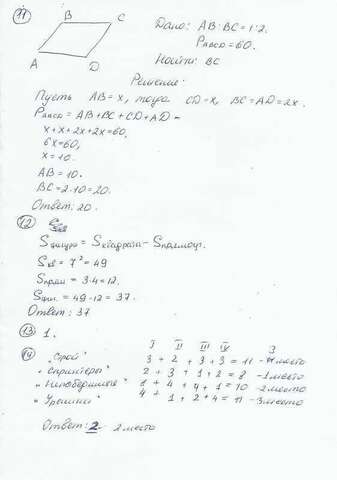 11
B C
A D
Дано: AB:BC=1:2.
PABCD=60.
Найти: BC
Решение:
Пусть AB=x, тогда CD=x, BC=AD=2x.
PABCD=AB+BC+CD+AD=
x+x+2x+2x=60,
6x=60,
x=10.
AB=10.
BC=2·10=20.
Ответ: 20.
12
Sфигуры = Sквадрата - Sпрямоуг.
Sкв = 7²=49
Sпрям = 3·4=12.
Sфиг. = 49-12=37.
Ответ: 37
13 1.
14 I II III IV
"Строй" 3+2+3+3=11 -место
"Спринтеры" 2+3+1+2=8 -1место
"Непобедимые" 1+4+4+1=10 -2место
4+1+2+4=11 -3место
Ответ: 2. 2место